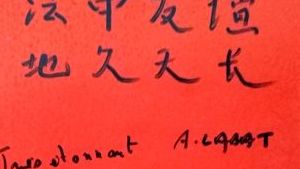 法中友谊
地久天长
étonnant A. LABAT